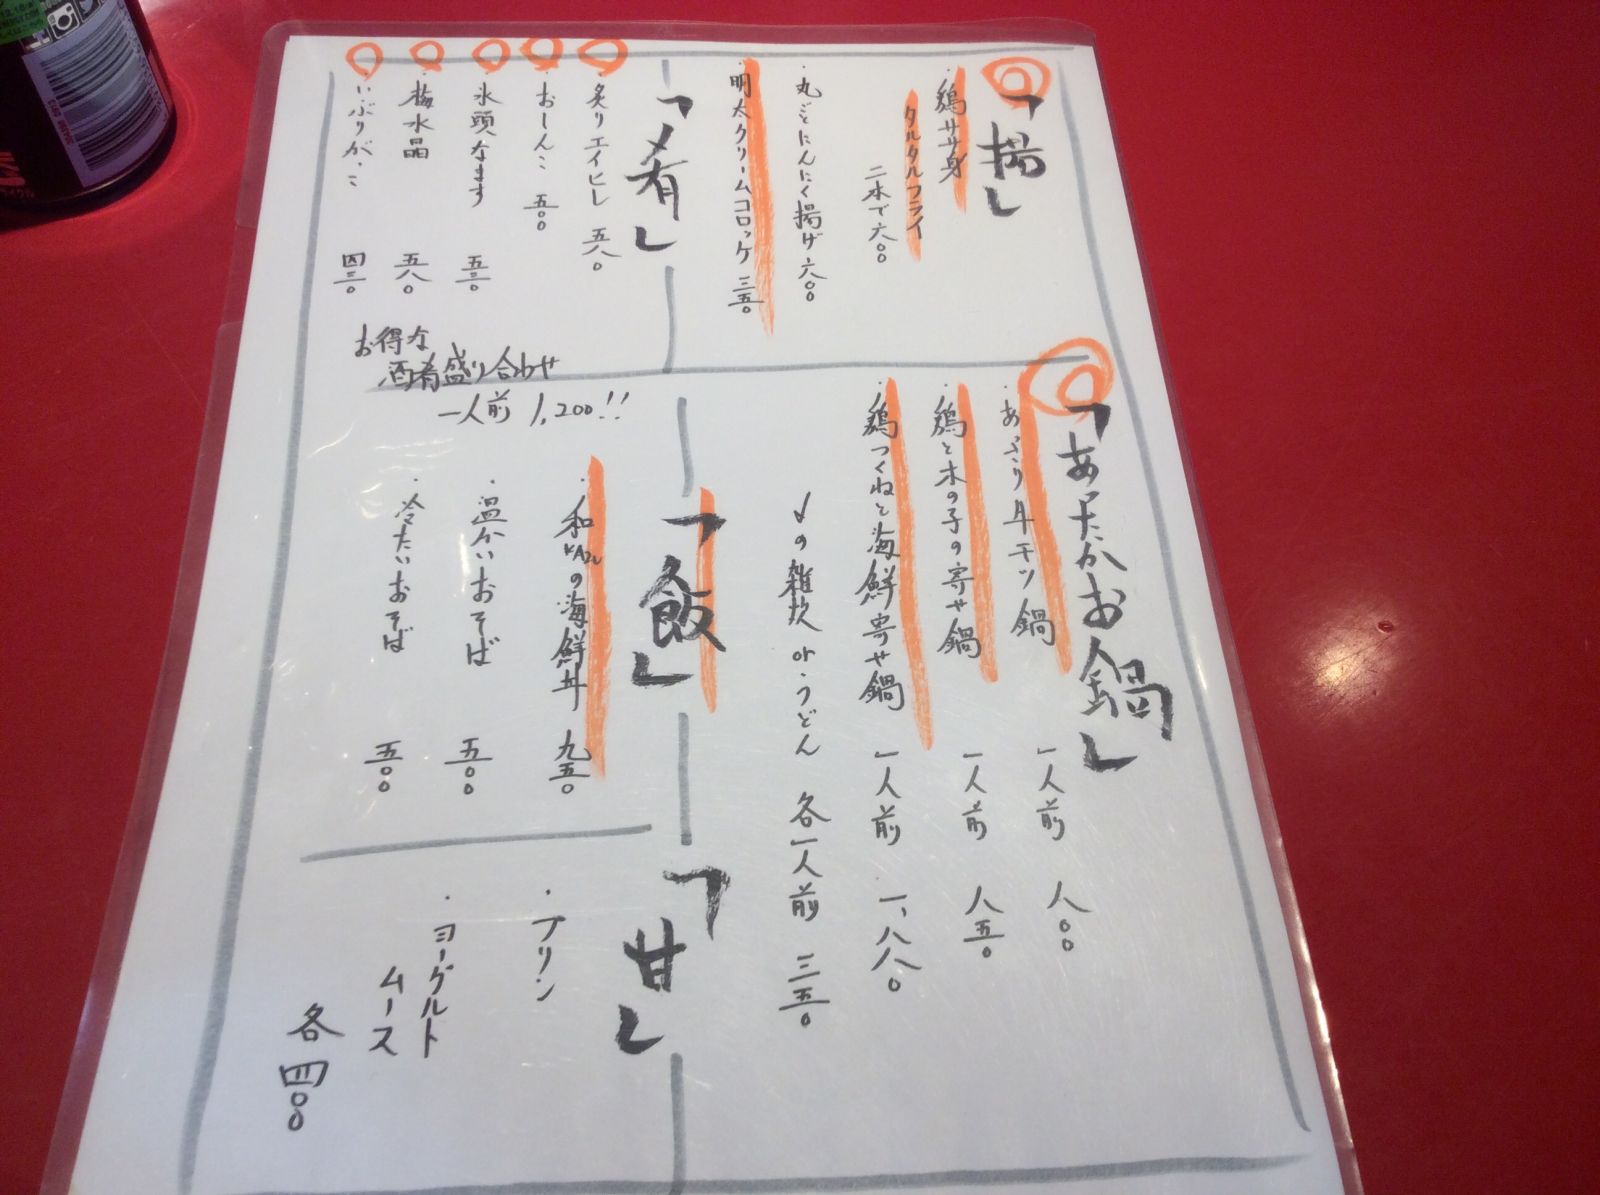 「揚」
・鶏ササ身
タルタルフライ
二本で 六〇〇
・丸ごとにんにく揚げ 六〇〇
・明太クリームコロッケ 三五〇
「肴」
・炙りエイヒレ 五八〇
・おしんこ 五〇〇
・氷頭なます 五三〇
・梅水晶 五八〇
・いぶりがっこ 四三〇
お得な
酒肴盛り合わせ
一人前 1,200!!
「あたたかお鍋」
・あさり チゲ鍋 一人前 八〇〇
・鶏と木の子の寄せ鍋 一人前 八五〇
・鶏つくねと海鮮寄せ鍋 一人前 一、八八〇
の雑炊 or うどん 各一人前 三五〇
「飯」
・和の海鮮丼 九五〇
・温かいおそば 五〇〇
・冷たいおそば 五〇〇
「甘」
・プリン
・ヨーグルト
ムース
各 四〇〇